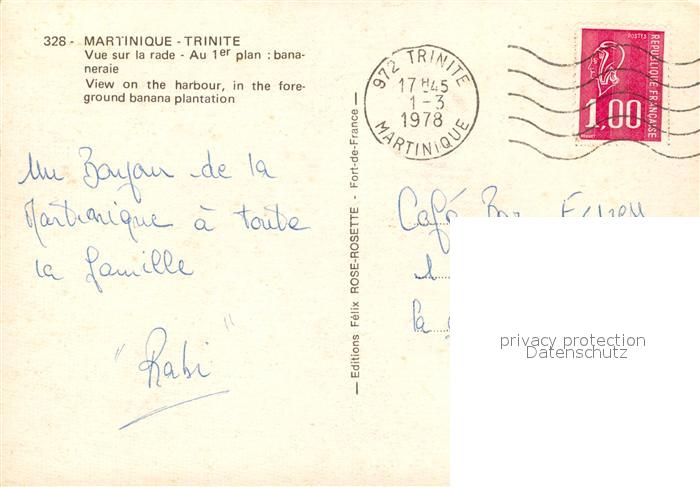 328 - MARTINIQUE - TRINITE
Vue sur la rade - Au 1er plan : bana-
neraie
View on the harbour, in the fore-
ground banana plantation
Un Bonjour de la
Martinique à toute
la famille
"Rabi"
— Editions Félix ROSE-ROSETTE - Fort-de-France —
972 TRINITE
17H45
1-3
1978
MARTINIQUE
POSTES
REPUBLIQUE FRANÇAISE
1,00
Café Bar
la
privacy protection
Datenschutz